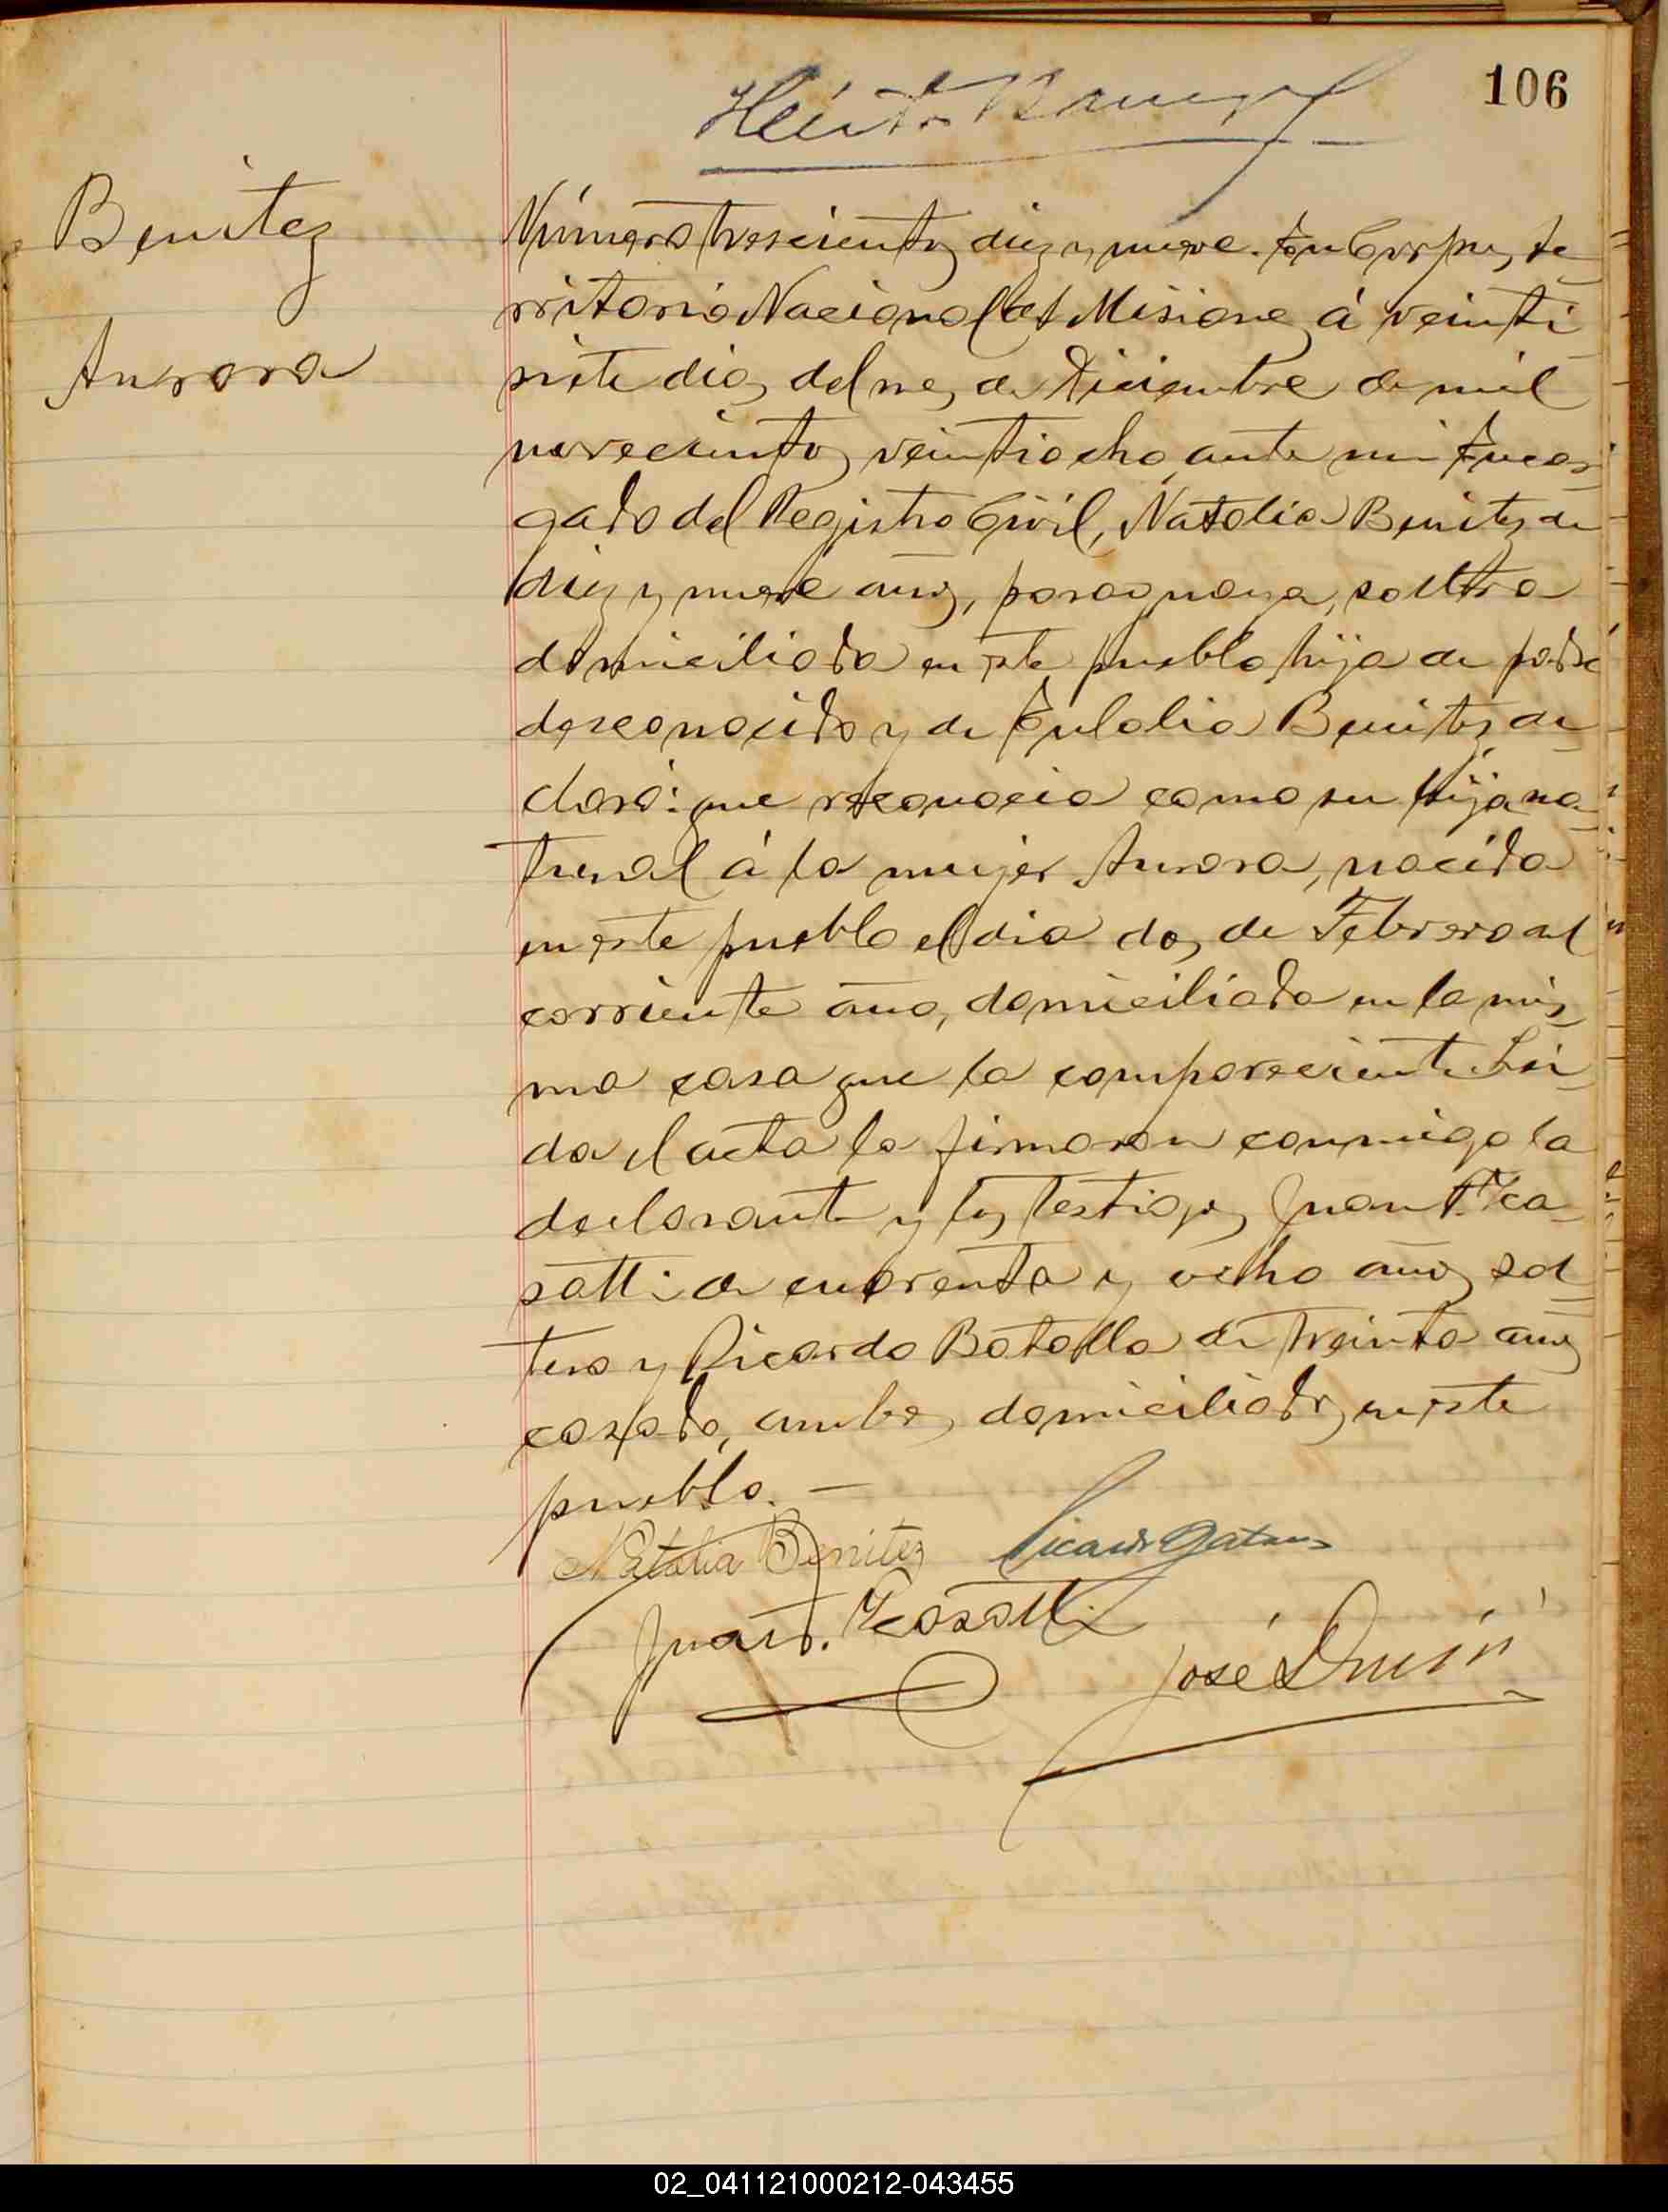 106
Benitez
Aurora
Número trescientos diez y nueve. En Corpus, te
rritorio Nacional de Misiones á veinti
siete dias del mes de Diciembre de mil
novecientos veintiocho, ante mi Encar
gado del Registro Civil, Natalia Benitez de
diez y nueve años, paraguaya, soltera
domiciliada en este pueblo, hija de padre
desconocido y de Eulalia Benitez de
claró: que reconocia como su hija na
tural á la mujer Aurora, nacida
en este pueblo el dia dos de Febrero del
corriente año, domiciliada en la mis
ma casa que la compareciente. Lei
da el acta la firmaron conmigo la
declarante y los testigos Juan
de cuarenta y ocho años sol
tero y Ricardo Batalla de treinta años
casado, ambos domiciliados en este
pueblo. —
Natalia Benitez
Juan
José
02_041121000212-043455